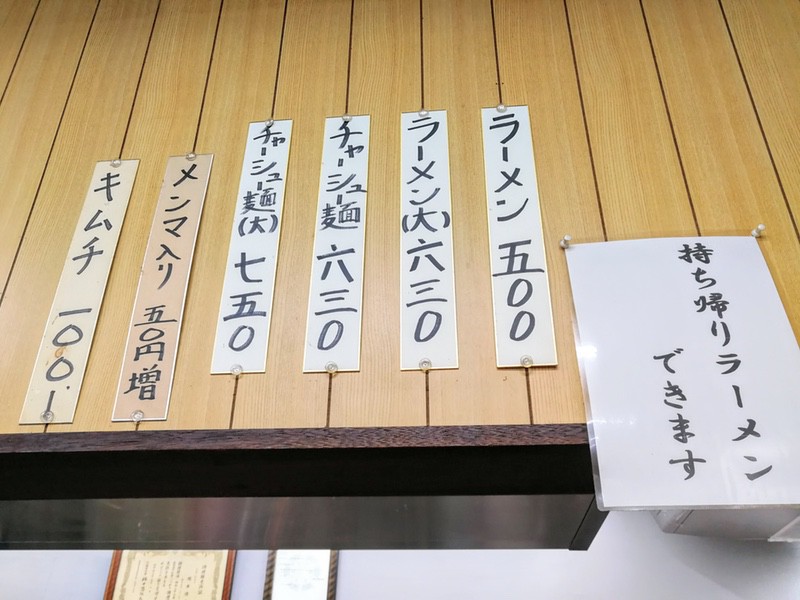 持ち帰りラーメン
できます
ラーメン 五〇〇
ラーメン(大) 六三〇
チャーシュー麺 六三〇
チャーシュー麺(大) 七五〇
メンマ入り 五〇円増
キムチ 一〇〇.ー